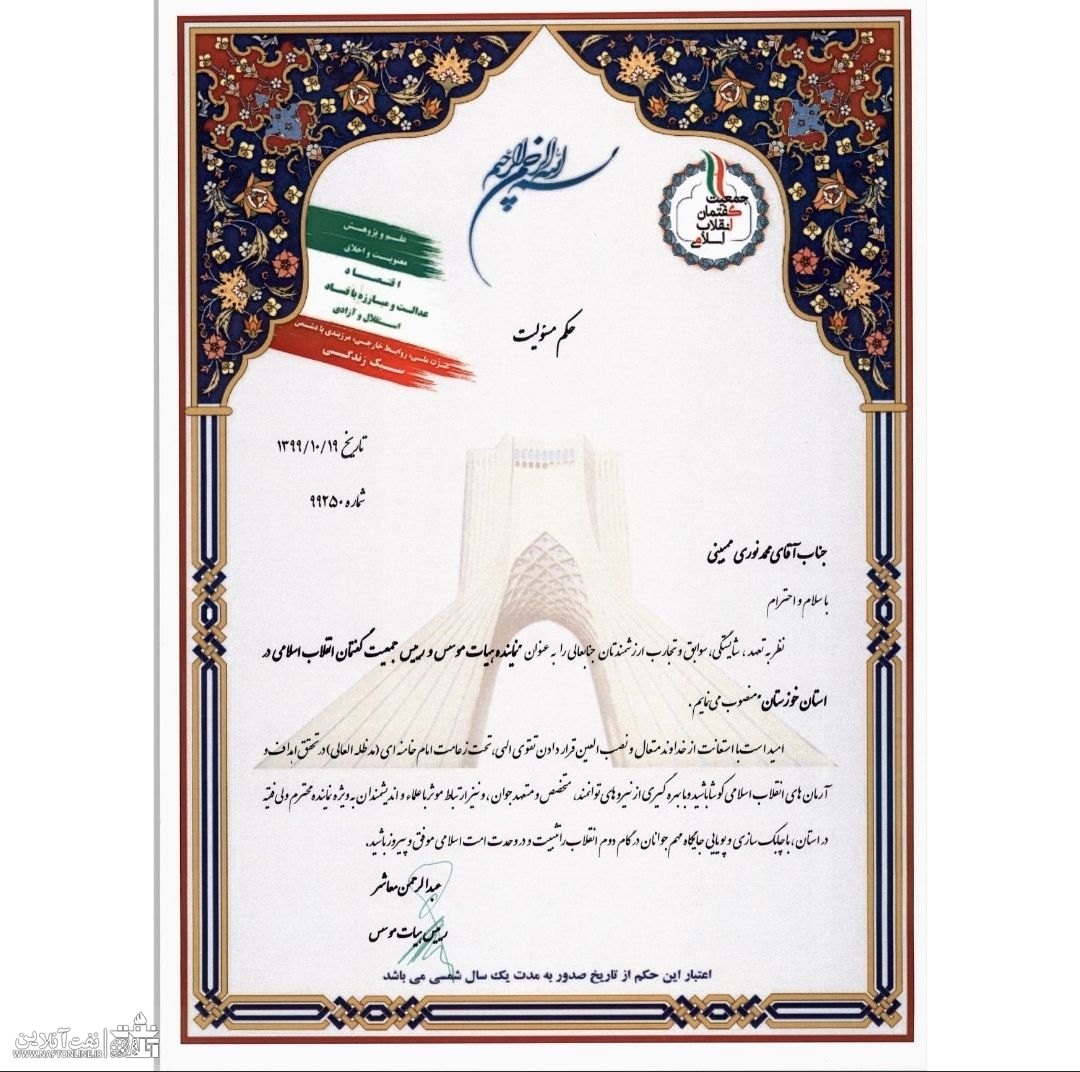 بسم الله الرحمن الرحیم
جمعیت
گفتمان
انقلاب
اسلامی
علم و پژوهش
معنویت و اخلاق
اقتصاد
عدالت و مبارزه با فساد
استقلال و آزادی
عزت ملی، روابط خارجی، مرزبندی با دشمن
سبک زندگی
حکم مسئولیت
تاریخ ۱۳۹۹/۱۰/۱۹
شماره ۹۹۲۵۰
جناب آقای محمد نوری ممبینی
با سلام و احترام
نظر به تعهد، شایستگی، سوابق و تجارب ارزشمندتان جنابعالی را به عنوان نماینده هیات موسس و رییس جمعیت گفتمان انقلاب اسلامی در
استان خوزستان منصوب می نمایم.
امید است با استعانت از خداوند متعال و نصب العین قرار دادن تقوی الهی، تحت زعامت امام خامنه ای (مد ظله العالی) در تحقق اهداف و
آرمان های انقلاب اسلامی کوشا باشید و با بهره گیری از نیروهای توانمند، متخصص و متعهد جوان، و نیز ارتباط موثر با علماء و اندیشمندان به ویژه نماینده محترم ولی فقیه
در استان، با چابک سازی و پویایی جایگاه مهم جوانان در گام دوم انقلاب را تثبیت و در وحدت امت اسلامی موفق و پیروز باشید.
عبدالرحمن معاشر
رییس هیات موسس
اعتبار این حکم از تاریخ صدور به مدت یک سال شمسی می باشد
نفت آنلاین
WWW.NAFTONLINE.IR